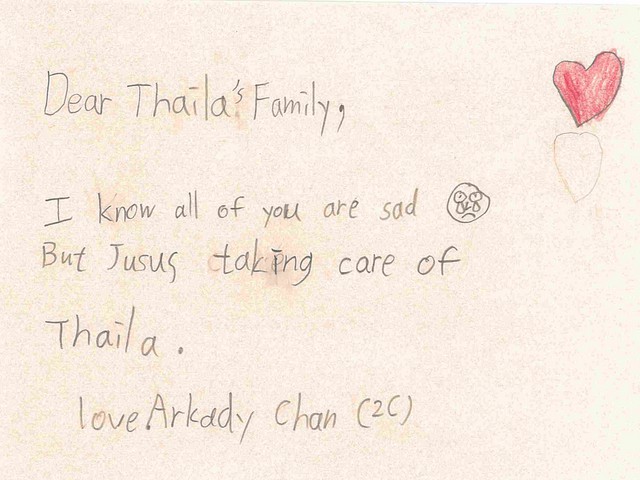 Dear Thaila's Family,
I know all of you are sad
But Jusus taking care of
Thaila.
love Arkady Chan (2C)